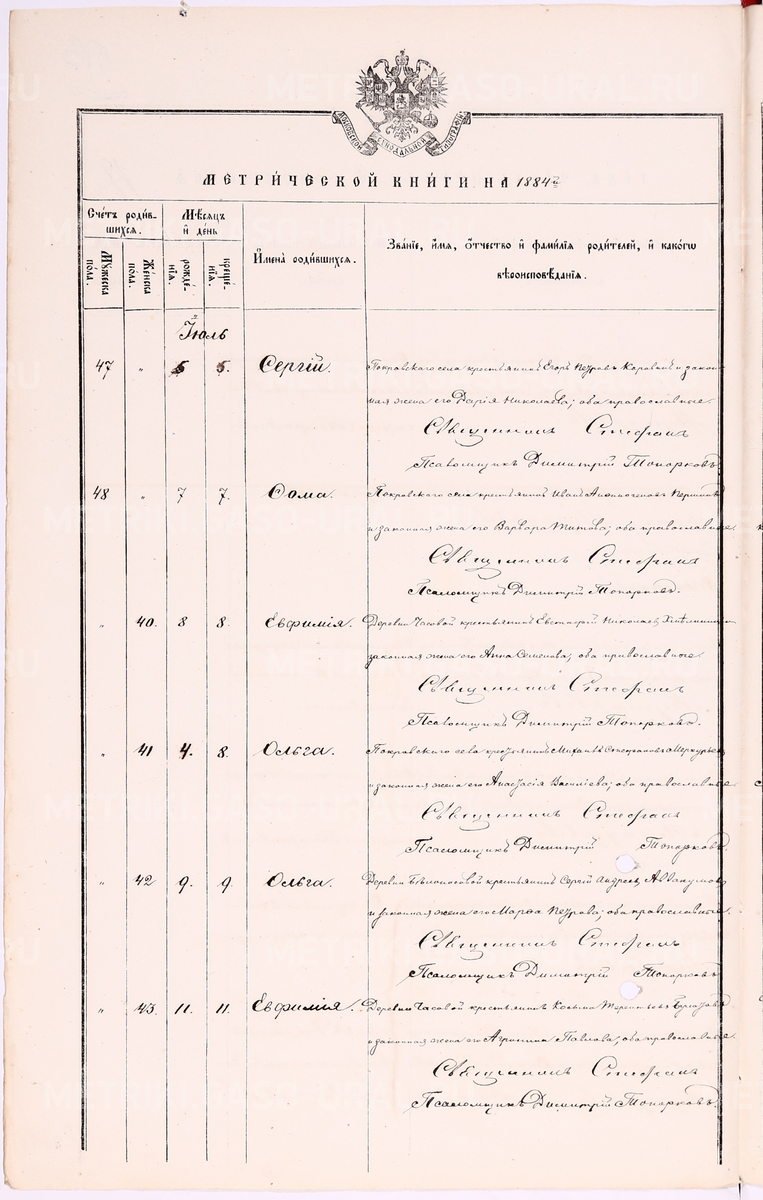 МОСКОВСКОЙ СѴНОДАЛЬНОЙ ТИПОГРАФІИ
МЕТРИ́ЧЕСКОЙ КНИ́ГИ НА 1884 й
Сче́тъ роди́в-
шихся.
Мѣ́сяцъ
и̂ де́нь
Мꙋ́жеска по́ла.
Же́нска по́ла.
рожде́-
нїѧ.
креще́-
нїѧ.
И̂мена̀ роди́вшихся.
Зва́нїе, и̂́мѧ, ѻ҆́тчество и̂ фами́лїѧ роди́телей, и̂ како́гѡ
вѣроисповѣ́данїѧ.
Іюль
47 " 5 5. Сергій. Покровскаго села крестьянинъ Егоръ Петровъ Коровинъ и закон-
ная жена его Дарія Николаева; оба православные.
Священникъ Стефанъ
Псаломщикъ Димитрій Топорковъ
48 " 7 7. Ѳома. Покровскаго села крестьянинъ Иванъ
и законная жена его Варвара Титова; оба православные.
Священникъ Стефанъ
Псаломщикъ Димитрій Топорковъ.
" 40. 8 8. Евфимія. Деревни Часовой крестьянинъ Евстафій Николаевъ
законная жена его Анна Семенова; оба православные.
Священникъ Стефанъ
Псаломщикъ Димитрій Топорковъ.
" 41 4. 8. Ольга. Покровскаго села крестьянинъ Михаилъ Степановъ Меркурьевъ
и законная жена его Анастасія Василіева; оба православные
Священникъ Стефанъ
Псаломщикъ Димитрій Топорковъ
" 42 9. 9. Ольга. Деревни Бѣлоносовой крестьянинъ Сергій Андреевъ Аввакумовъ
и законная жена его Марѳа Петрова; оба православные.
Священникъ Стефанъ
Псаломщикъ Димитрій Топорковъ
" 43. 11. 11. Евфимія. Деревни Часовой крестьянинъ Косьма Терентьевъ
и законная жена его Агрипина Павлова, оба православные.
Священникъ Стефанъ
Псаломщикъ Димитрій Топорковъ.